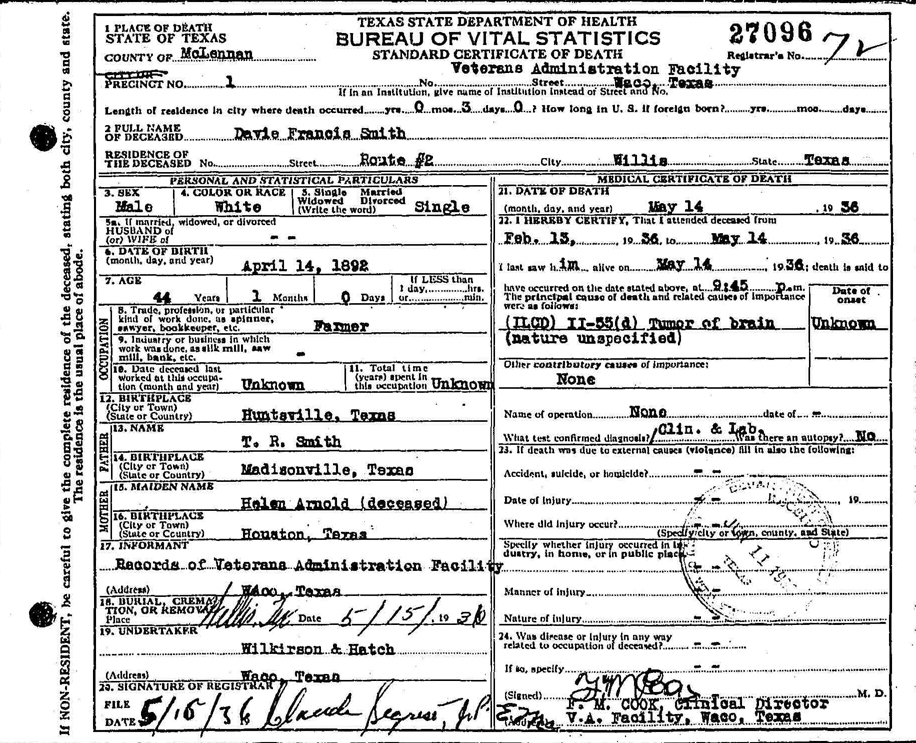 TEXAS STATE DEPARTMENT OF HEALTH
BUREAU OF VITAL STATISTICS
STANDARD CERTIFICATE OF DEATH
27096
Registrar's No. 72
1 PLACE OF DEATH
STATE OF TEXAS
COUNTY OF McLennan
CITY OR
PRECINCT NO. 1
Veterans Administration Facility
No. Street Waco, Texas
If in an Institution, give name of Institution instead of Street and No.
Length of residence in city where death occurred yrs. 0 mos. 3 days 0? How long in U. S. if foreign born? yrs. mos. days
2 FULL NAME
OF DECEASED Davie Francis Smith
RESIDENCE OF
THE DECEASED No. Street Route #2 City Willis State Texas
PERSONAL AND STATISTICAL PARTICULARS
3. SEX
Male
4. COLOR OR RACE
White
5. Single Married
Widowed Divorced
(Write the word) Single
5a. If married, widowed, or divorced
HUSBAND of
(or) WIFE of - -
6. DATE OF BIRTH
(month, day, and year) April 14, 1892
7. AGE
44 Years 1 Months 0 Days
If LESS than
1 day, hrs.
or min.
OCCUPATION
8. Trade, profession, or particular
kind of work done, as spinner,
sawyer, bookkeeper, etc. Farmer
9. Industry or business in which
work was done, as silk mill, saw
mill, bank, etc. -
10. Date deceased last
worked at this occupa-
tion (month and year) Unknown
11. Total time
(years) spent in
this occupation Unknown
12. BIRTHPLACE
(City or Town)
(State or Country) Huntsville, Texas
FATHER
13. NAME
T. R. Smith
14. BIRTHPLACE
(City or Town)
(State or Country) Madisonville, Texas
MOTHER
15. MAIDEN NAME
Helen Arnold (deceased)
16. BIRTHPLACE
(City or Town)
(State or Country) Houston, Texas
17. INFORMANT
Records of Veterans Administration Facility
(Address) Waco, Texas
18. BURIAL, CREMA-
TION, OR REMOVAL
Place Willis, Tex Date 5/15/1936
19. UNDERTAKER
Wilkirson & Hatch
(Address) Waco, Texas
20. SIGNATURE OF REGISTRAR
FILE
DATE 5/15/36 Claude Segrest, J.P.
MEDICAL CERTIFICATE OF DEATH
21. DATE OF DEATH
(month, day, and year) May 14, 1936
22. I HEREBY CERTIFY, That I attended deceased from
Feb. 13, 1936, to May 14, 1936
I last saw him alive on May 14, 1936; death is said to
have occurred on the date stated above, at 9:45 p.m.
The principal cause of death and related causes of importance
were as follows:
Date of
onset
(ILCD) II-55(d) Tumor of brain
(nature unspecified)
Unknown
Other contributory causes of importance:
None
Name of operation None date of -
What test confirmed diagnosis? Clin. & Lab. Was there an autopsy? No
23. If death was due to external causes (violence) fill in also the following:
Accident, suicide, or homicide? - -
Date of injury - - 19
Where did injury occur?
(Specify city or town, county, and State)
Specify whether injury occurred in in-
dustry, in home, or in public place
Manner of injury
Nature of injury - -
24. Was disease or injury in any way
related to occupation of deceased? - -
If so, specify - -
(Signed) M. D.
F. M. COOK, Clinical Director
(Address) V.A. Facility, Waco, Texas
JUN 11
TEXAS
If NON-RESIDENT, be careful to give the complete residence of the deceased, stating both city, county and state.
The residence is the usual place of abode.